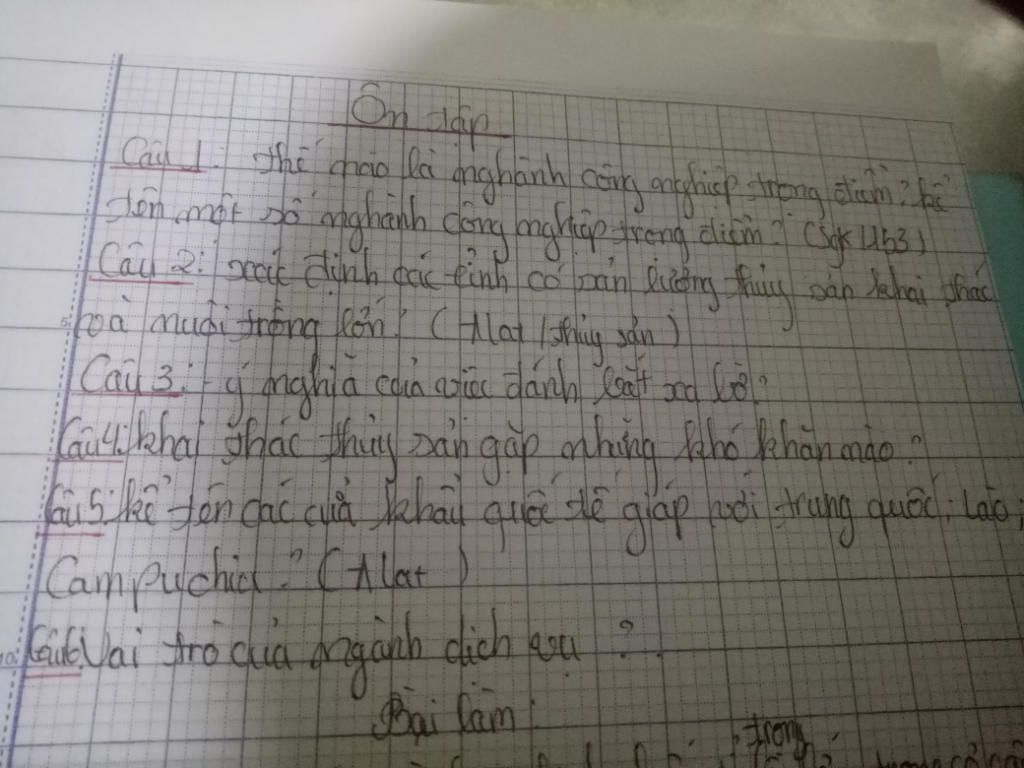 Ôn tập
Câu 1: thế nào là nghành công nghiệp trọng điểm? kể
tên một số nghành công nghiệp trọng điểm? (Sgk
Câu 2: xác định các tỉnh có sản lượng thủy sản khai thác
và nuôi trồng lớn? (Alat / thủy sản)
Câu 3: ý nghĩa của việc đánh bắt xa bờ?
Câu 4: khai thác thủy sản gặp những khó khăn nào?
Câu 5: kể tên các cửa khẩu quốc tế giáp với trung quốc, Lào,
Campuchia? (Alat)
Câu 6 Vai trò của ngành dịch vụ?
Bài làm:
trong